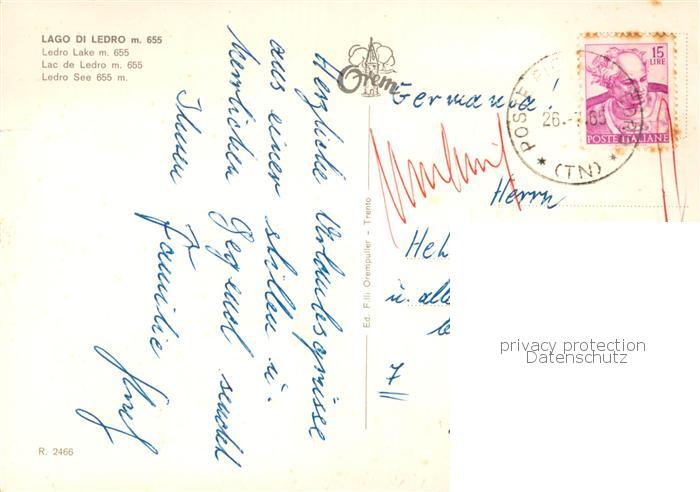 LAGO DI LEDRO m. 655
Ledro Lake m. 655
Lac de Ledro m. 655
Ledro See 655 m.
Herzliche Urlaubsgrüsse
aus einer stillen u.
herrlichen Gegend sendet
Ihnen Familie
R. 2466
Orem
Ed. F.lli Orempuller - Trento
15
LIRE
POSTE ITALIANE
POSTE
26.
65
(TN)
Germania!
Herrn
Hel
u. alle
7
privacy protection
Datenschutz